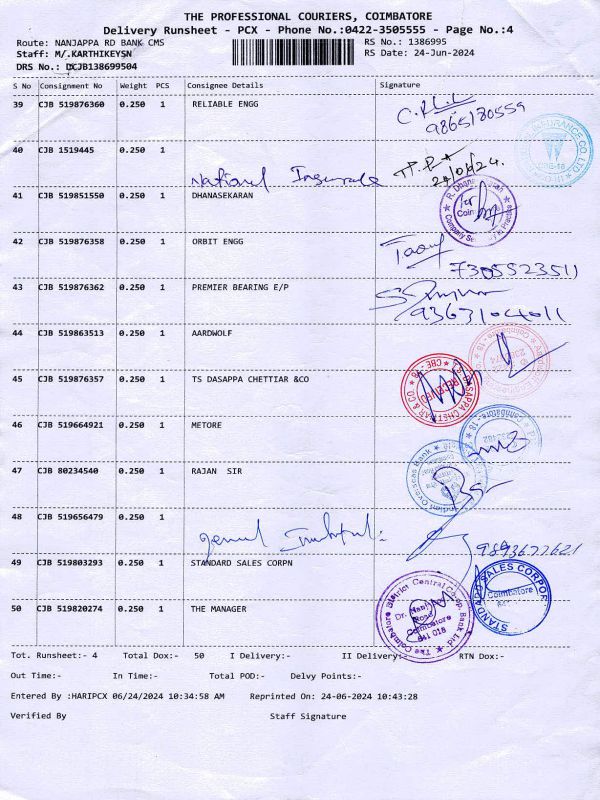 THE PROFESSIONAL COURIERS, COIMBATORE
Delivery Runsheet - PCX - Phone No.:0422-3505555 - Page No.:4
Route: NANJAPPA RD BANK CMS RS No.: 1386995
Staff: M/.KARTHIKEYSN RS Date: 24-Jun-2024
DRS No.: DCJB138699504
S No Consignment No Weight PCS Consignee Details Signature
39 CJB 519876360 0.250 1 RELIABLE ENGG
9865180559
40 CJB 1519445 0.250 1
National Insurance 24/06/24.
41 CJB 519851550 0.250 1 DHANASEKARAN
42 CJB 519876358 0.250 1 ORBIT ENGG
7305523511
43 CJB 519876362 0.250 1 PREMIER BEARING E/P
9363104011
44 CJB 519863513 0.250 1 AARDWOLF
45 CJB 519876357 0.250 1 TS DASAPPA CHETTIAR &CO
46 CJB 519664921 0.250 1 METORE
47 CJB 80234540 0.250 1 RAJAN SIR
Indian Overseas Bank
48 CJB 519656479 0.250 1
9893677621
49 CJB 519803293 0.250 1 STANDARD SALES CORPN
STANDARD SALES CORPOR
Coimbatore
50 CJB 519820274 0.250 1 THE MANAGER
The Coimbatore District Central Co.op. Bank Ltd.
Dr. Nanjappa
Road
Coimbatore
641 018
Tot. Runsheet:- 4 Total Dox:- 50 I Delivery:- II Delivery:- RTN Dox:-
Out Time:- In Time:- Total POD:- Delvy Points:-
Entered By :HARIPCX 06/24/2024 10:34:58 AM Reprinted On: 24-06-2024 10:43:28
Verified By Staff Signature